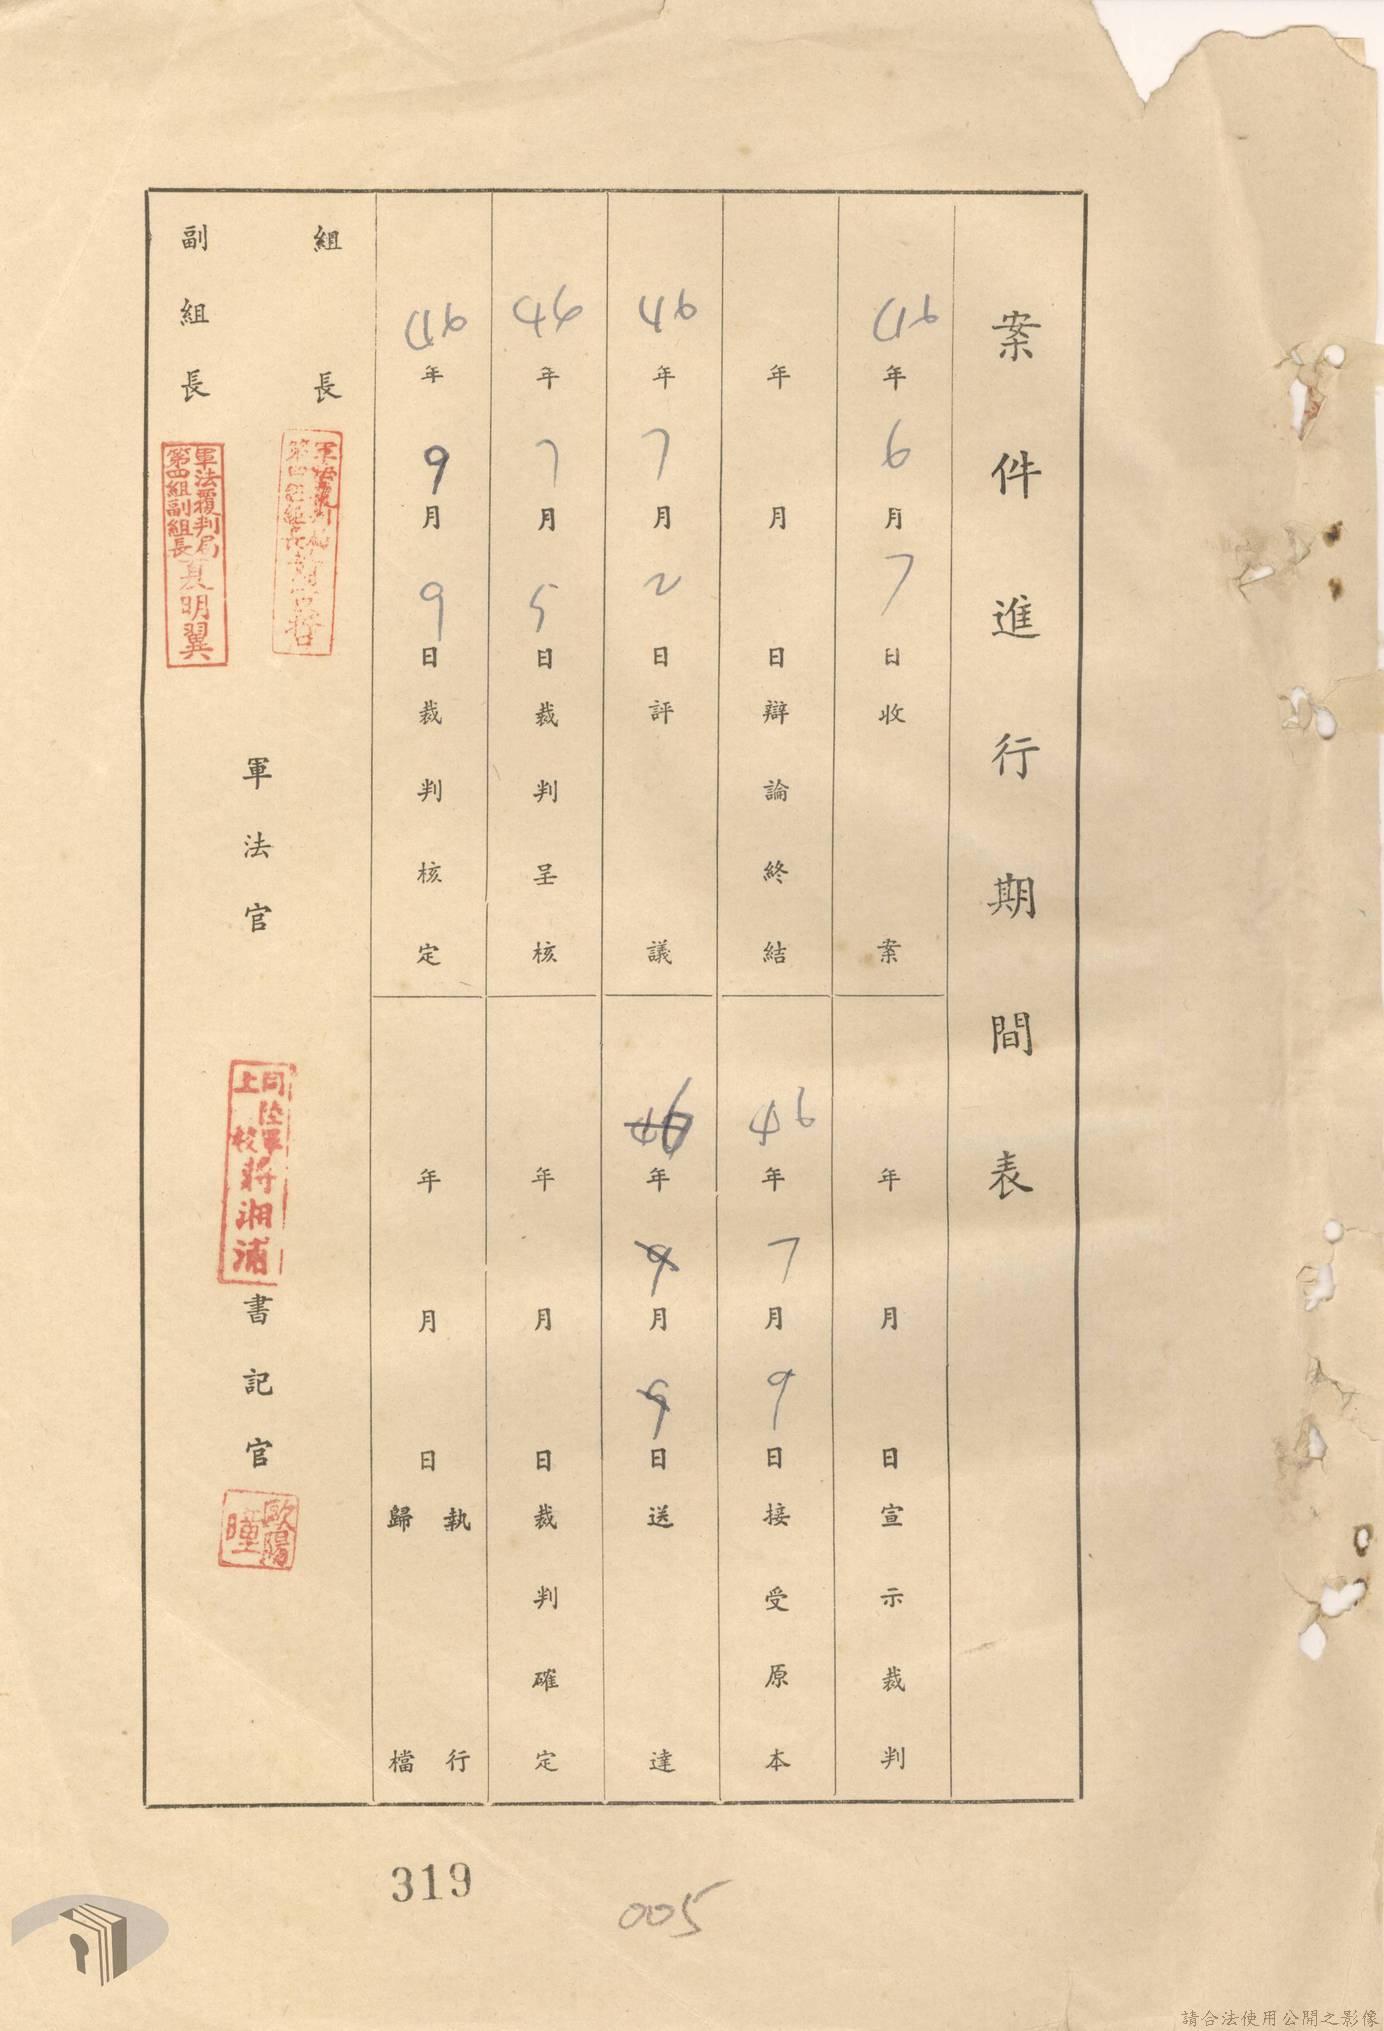 案件進行期間表
46年6月7日收案
年月日辯論終結
46年7月2日評議
46年7月5日裁判呈核
46年9月9日裁判核定
年月日宣示裁判
46年7月9日接受原本
46年9月9日送達
年月日裁判確定
年月日執行
歸檔
組長
副組長
軍法覆判局
第四組副組長
夏明翼
軍法官
同陸軍
上校
蔣湘浦
書記官
歐陽
瞳
319
005
請合法使用公開之影像